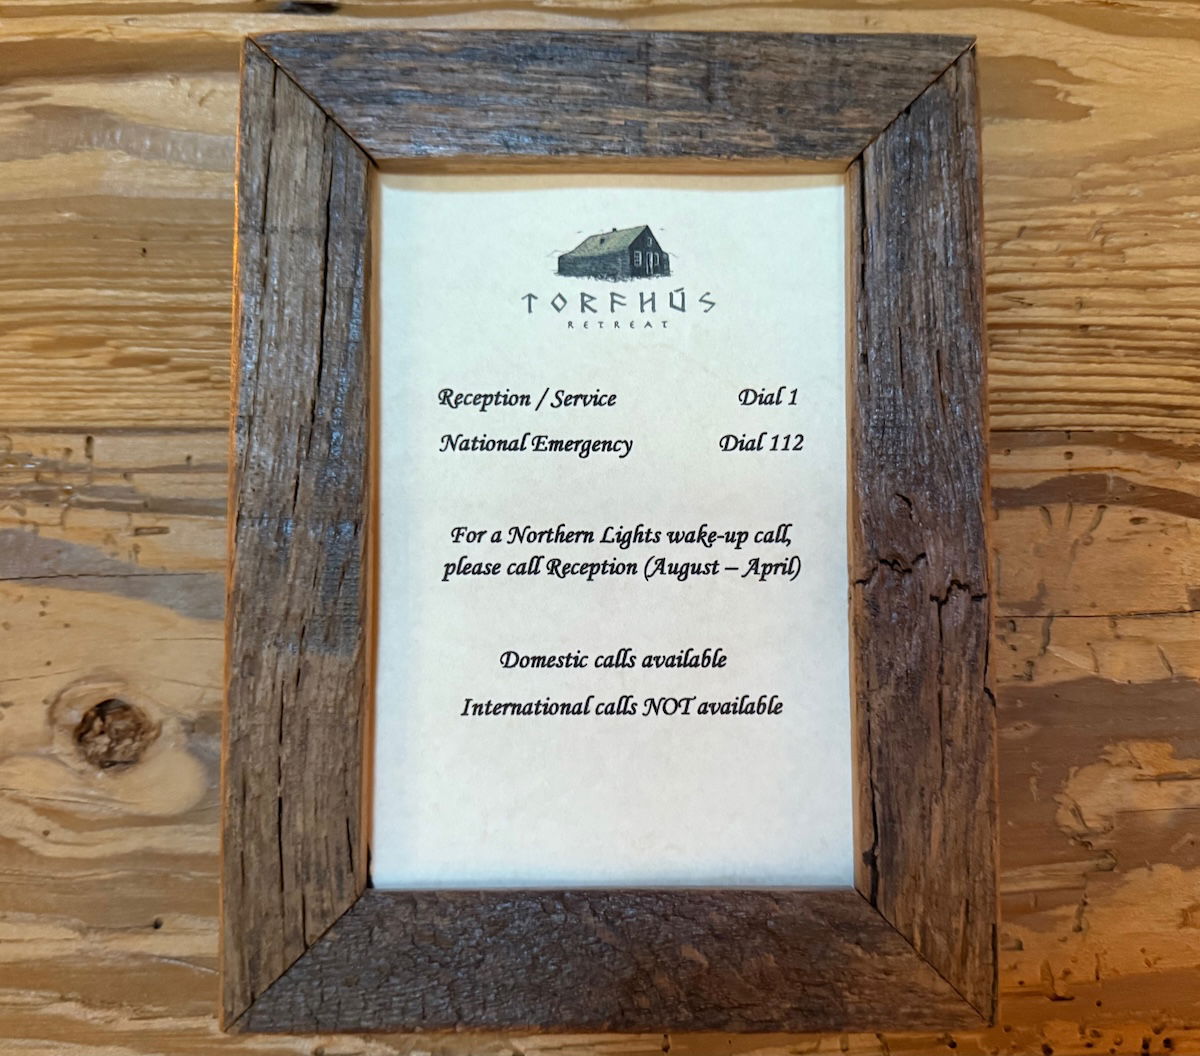 TORFHÚS
RETREAT
Reception / Service Dial 1
National Emergency Dial 112
For a Northern Lights wake-up call,
please call Reception (August – April)
Domestic calls available
International calls NOT available